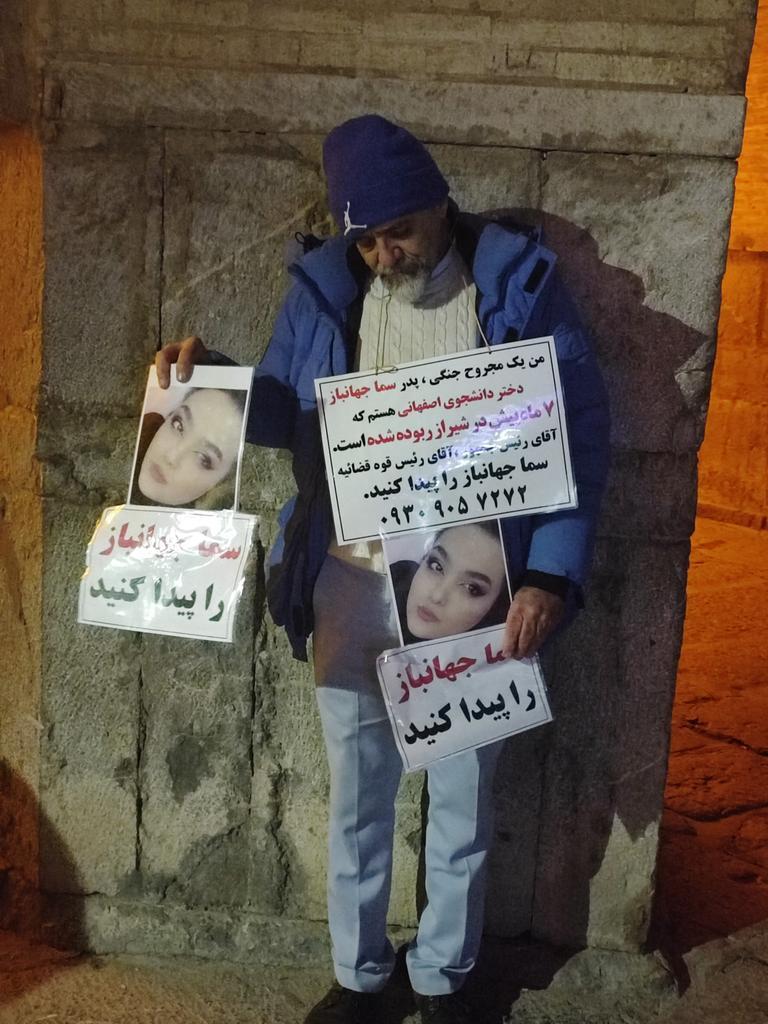 من یک مجروح جنگی ، پدر سما جهانباز
دختر دانشجوی اصفهانی هستم که
۷ ماه پیش در شیراز ربوده شده است.
آقای رئیس جمهور ، آقای رئیس قوه قضائیه
سما جهانباز را پیدا کنید.
۰۹۳۰ ۹۰۵ ۷۲۷۲
سما جهانباز
را پیدا کنید
سما جهانباز
را پیدا کنید